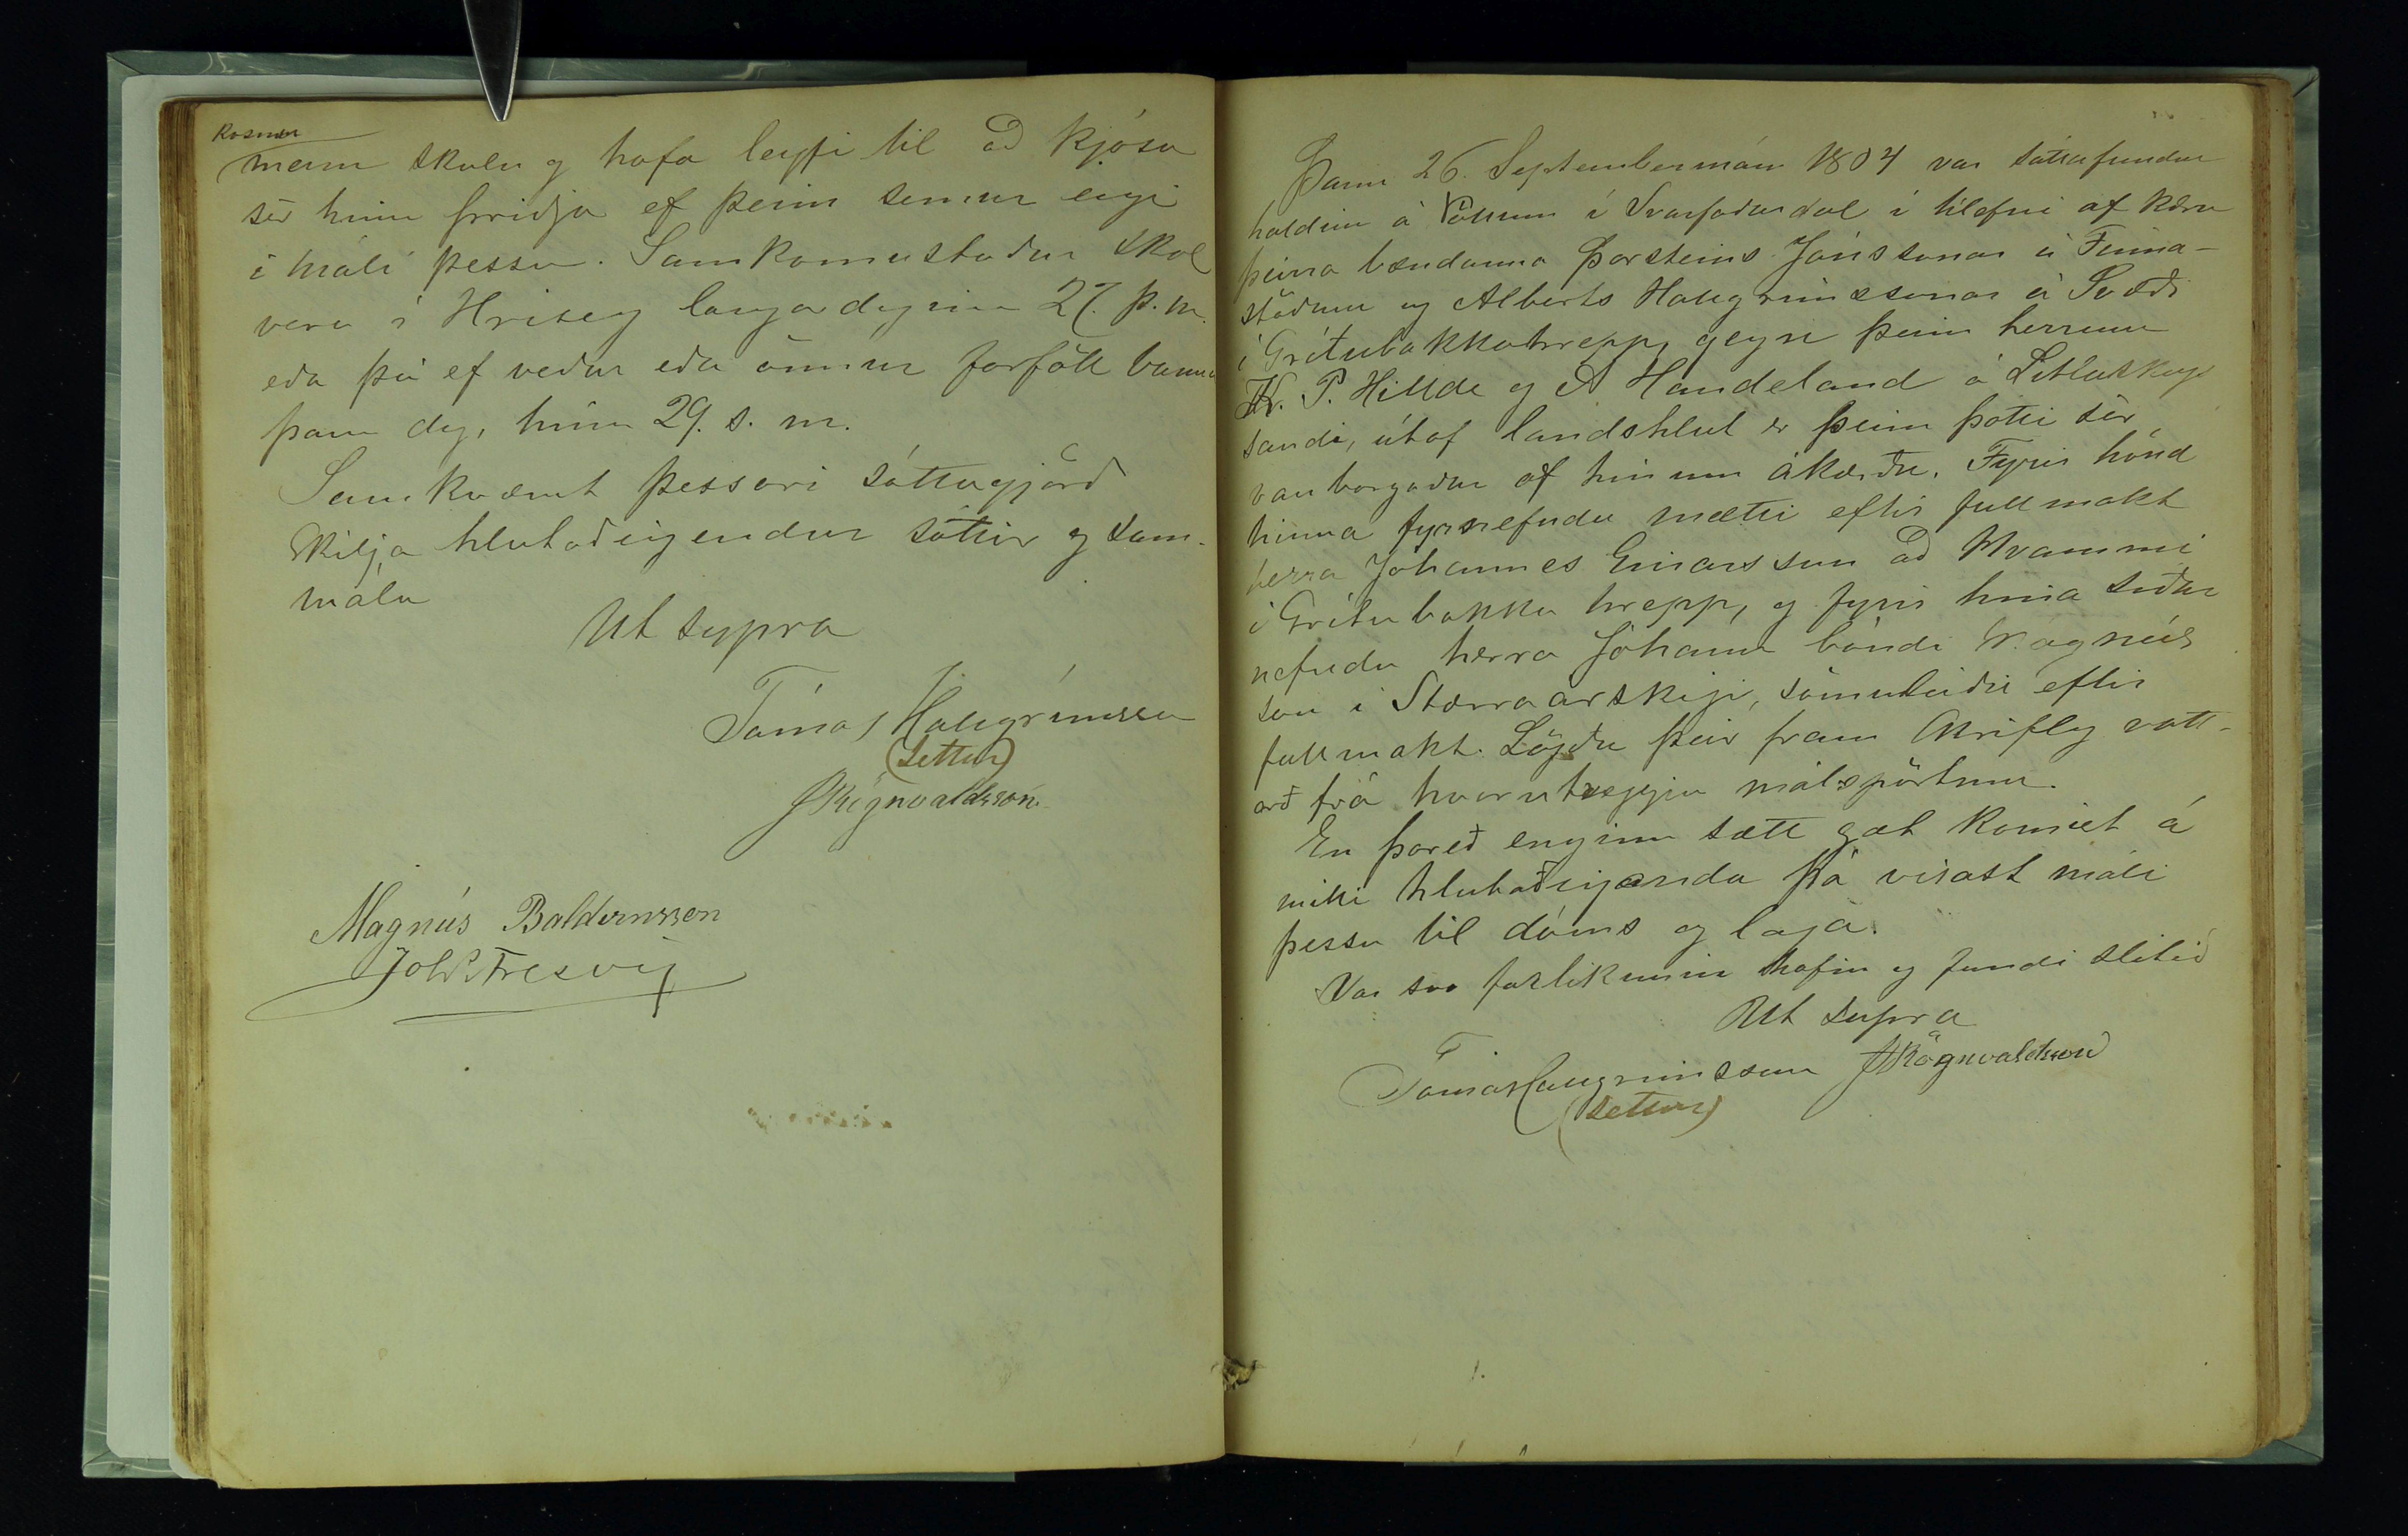 Kosnir
menn skulu og hafa leyfi til að kjósa
sér hinn þriðja ef þeim semur eigi
í máli þessu. Samkomustaður skal
vera í Hrisey laugardaginn 27. þ. m.
eða þá ef veður eða önnur forföll banna
þann dag, hinn 29. s. m.
Samkvæmt þessari sáttagjörð
skilja hlutaðeigendur sáttir og sam-
mála
Ut supra
Tómas Hallgrímsson
(settur)
JRögnvaldsson
Magnús Baldvinsson
Joh. Tresvig
Þann 26. Septembermán 1804 var sáttafundur
haldinn á Völlum í Svarfaðardal í tilefni af kæru
þeirra bændanna Þorsteins Jónssonar á Finna-
stöðum og Alberts Hallgrímssonar á Svæði
í Grítubakkahrepp, gegn þeim herrum
Kr. P. Hillde og A Handeland á Litluskógs
sandi, útaf landshlut er þeim þótti sér
vanborgaður af hinum ákærðu. Fyrir hönd
hinna fyrrnefndu mætti eftir fullmakt
herra Jóhannes Einarsson að Hvammi
í Grítubakka hrepp, og fyrir hina síðar
nefndu herra Jóhann bóndi Magnús
son í Stærraarskógi, sömuleiðis eftir
fullmakt. Lögðu þeir fram skrifleg vott-
orð frá hvorutveggju málspörtum.
En þareð enginn sætt gat komist á
milli hlutaðeiganda þá vísast máli
þessu til dóms og laga.
Var svo forlikunin hafin og fundi slitið
Ut supra
Tómas Hallgrímsson JRögnvaldsson
(settur)